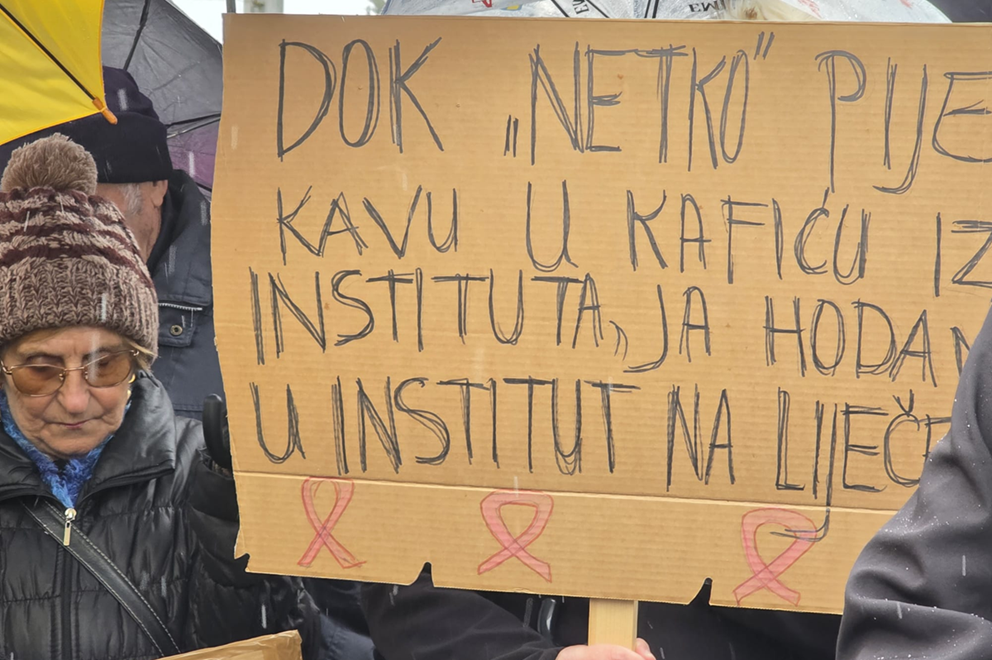 DOK „NETKO” PIJE
KAVU U KAFIĆU IZ
INSTITUTA, JA HODAM
U INSTITUT NA LIJEČE